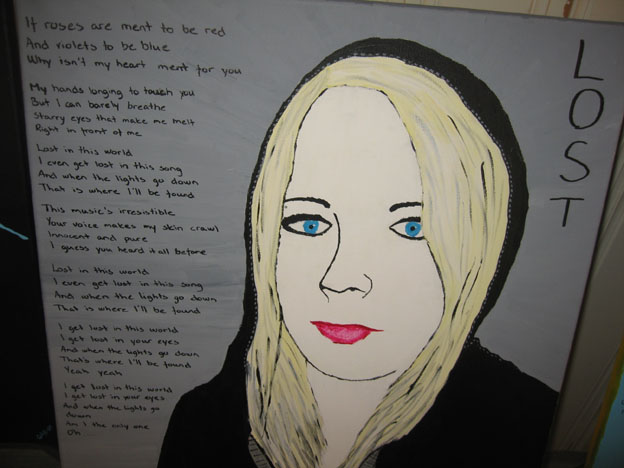 If roses are ment to be red
And violets to be blue
Why isn't my heart ment for you
My hands longing to touch you
But I can barely breathe
Starry eyes that make me melt
Right in front of me
Lost in this world
I even get lost in this song
And when the lights go down
That is where I'll be found
This music's irresistible
Your voice makes my skin crawl
Innocent and pure
I guess you heard it all before
Lost in this world
I even get lost in this song
And when the lights go down
That is where I'll be found
I get lost in this world
I get lost in your eyes
And when the lights go down
That's where I'll be found
Yeah yeah
I get lost in this world
I get lost in your eyes
And when the lights go
down
Am I the only one
Oh
LOST